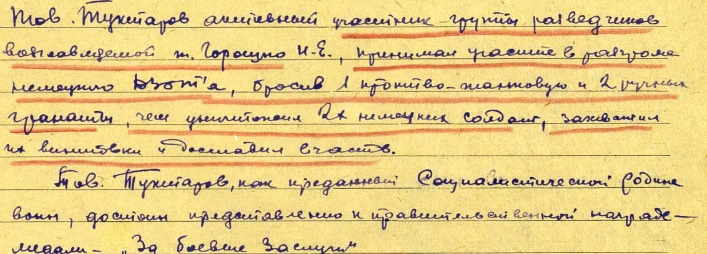 Тов. Тухтаров активный участник группы разведчиков
возглавляемой т. Горошко Н.Е., принимал участие в разгроме
немецкого ДЗОТ'а, бросив 1 противо-танковую и 2 ручных
гранаты, чем уничтожил 2х немецких солдат, захватил
их винтовки и доставил в часть.
Тов. Тухтаров, как преданный Социалистической родине
воин, достоин представлению к правительственной награде-
медали- „За боевые Заслуги"